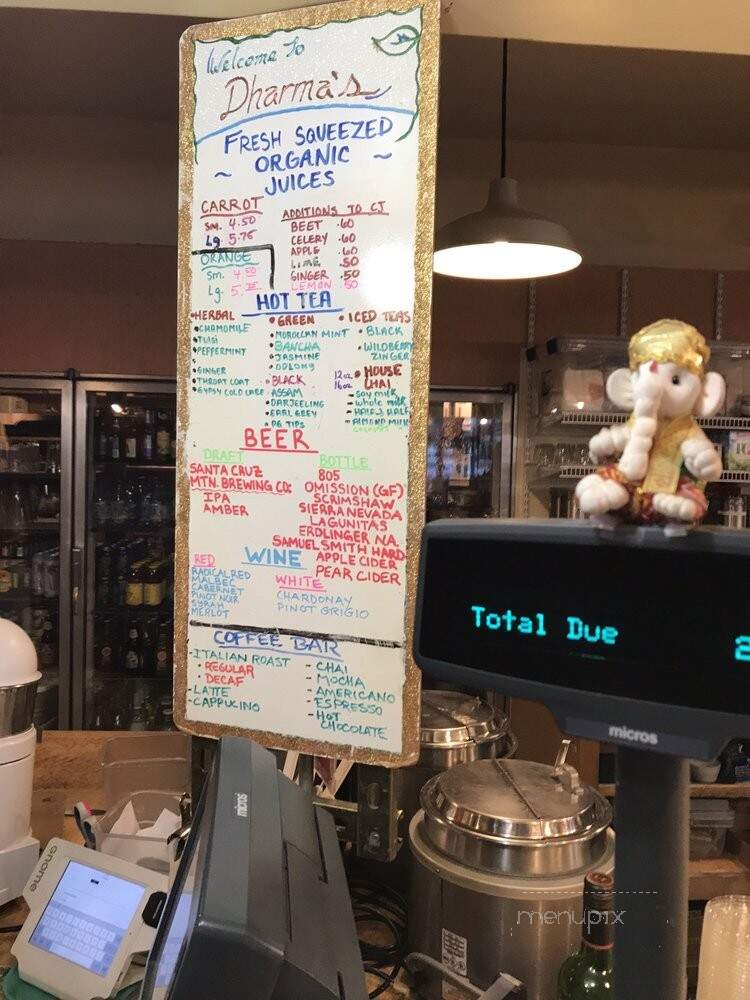 Welcome To
Dharma's
FRESH SQUEEZED
~ ORGANIC ~
JUICES
CARROT
Sm. 4.50
Lg. 5.75
ORANGE
Sm. 4.50
Lg. 5.
ADDITIONS TO CJ
BEET .60
CELERY .60
APPLE .60
LIME .50
GINGER .50
LEMON .50
HOT TEA
• HERBAL
• CHAMOMILE
• TULSI
• PEPPERMINT
• GINGER
• THROAT COAT
• GYPSY COLD CARE
• GREEN
• MOROCCAN MINT
• BANCHA
• JASMINE
• OOLONG
• BLACK
ASSAM
• DARJEELING
• EARL GREY
• PG TIPS
• ICED TEAS
• BLACK
• WILDBERRY
ZINGER
12oz
16oz
• HOUSE
CHAI
- soy milk
- whole milk
- HALF & HALF
- ALMOND MILK
COCONUT
BEER
DRAFT
SANTA CRUZ
MTN. BREWING CO:
IPA
AMBER
BOTTLE
805
OMISSION (GF)
SCRIMSHAW
SIERRA NEVADA
LAGUNITAS
ERDLINGER NA
SAMUEL SMITH HARD
APPLE CIDER
PEAR CIDER
WINE
RED
RADICAL RED
MALBEC
CABERNET
PINOT NOIR
SYRAH
MERLOT
WHITE
CHARDONAY
PINOT GRIGIO
COFFEE BAR
- ITALIAN ROAST
• REGULAR
• DECAF
- LATTE
- CAPPUCINO
- CHAI
- MOCHA
- AMERICANO
- ESPRESSO
- HOT
CHOCOLATE
Total Due
micros
micros
menupix